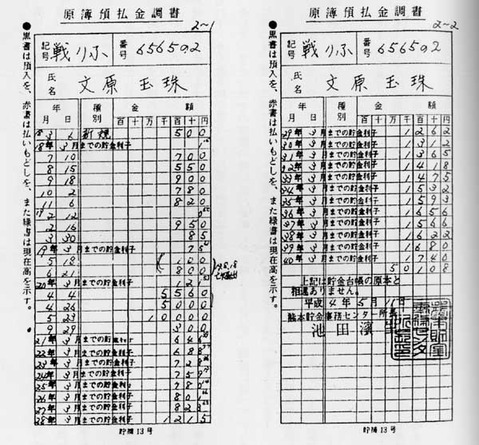 原簿預払金調書
2~1
●黒書は預入を、赤書は払いもどしを、また緑書は現在高を示す。
記号 戦りふ 番号 656502
氏名 文原玉珠
年月日 種別 金額
百十万千百十円
18 3 6 新規 500
18年3月までの貯金利子
7 10 700
8 15 550
9 18 900
10 780
11 6 820
2 12
2 16 950
3 30 85
19年3月までの貯金利子
5 18 100
6 21 800
20年3月までの貯金利子
4 4 5560
4 26 5000
5 23 10000
9 29 300
21年3月までの貯金利子
22年3月までの貯金利子
23年3月までの貯金利子
24年3月までの貯金利子
25年3月までの貯金利子
26年3月までの貯金利子
27年3月までの貯金利子
28年3月までの貯金利子 1215
貯補13号
原簿預払金調書
2~2
●黒書は預入を、赤書は払いもどしを、また緑書は現在高を示す。
記号 戦りふ 番号 656502
氏名 文原玉珠
年月日 種別 金額
百十万千百十円
29年3月までの貯金利子 1262
30年3月までの貯金利子 1312
31年3月までの貯金利子 1365
32年3月までの貯金利子 1418
33年3月までの貯金利子 1475
34年3月までの貯金利子 1532
35年3月までの貯金利子 1593
36年3月までの貯金利子 1656
37年3月までの貯金利子 1566
38年3月までの貯金利子 1622
39年3月までの貯金利子 1680
40年3月までの貯金利子 1740
50108
上記は貯金台帳の原本と
相違ありません。
平成4年5月11日
熊本貯金事務センター所長
池田
貯補13号